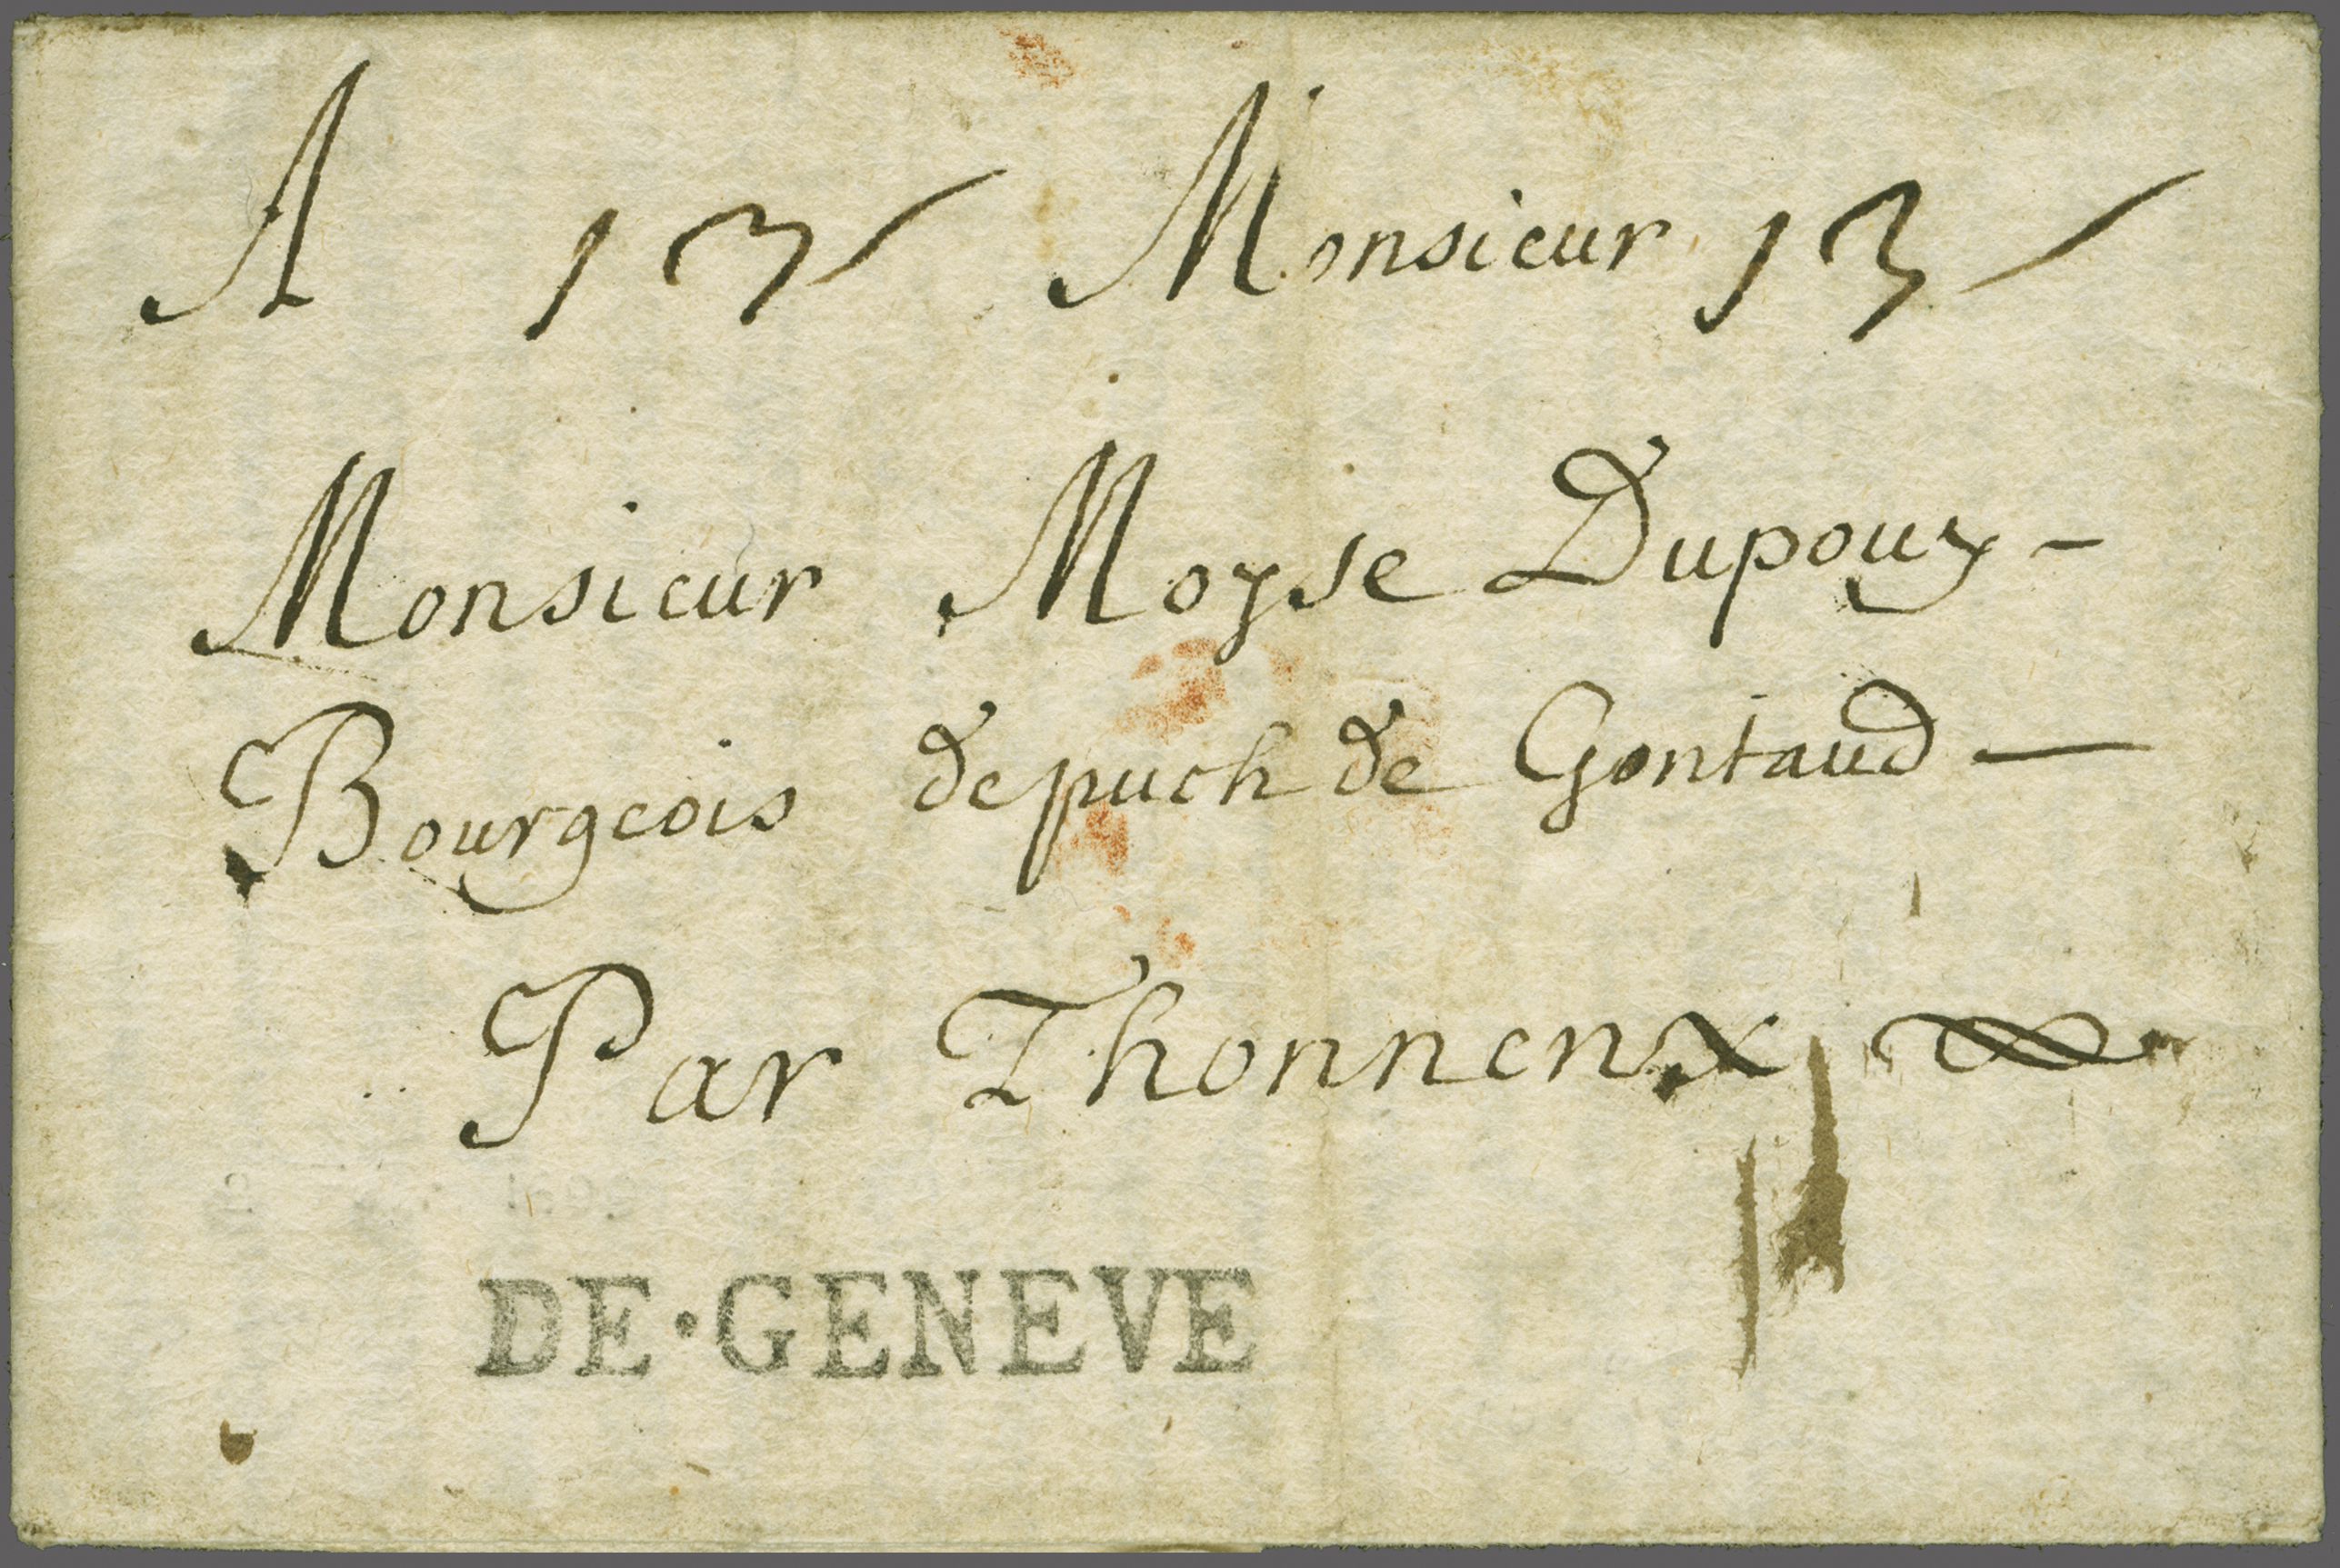 A 13 Monsieur 13
Monsieur Moyse Dupouy -
Bourgeois de puch de Gontaud -
Par Thonnenx
DE·GENEVE